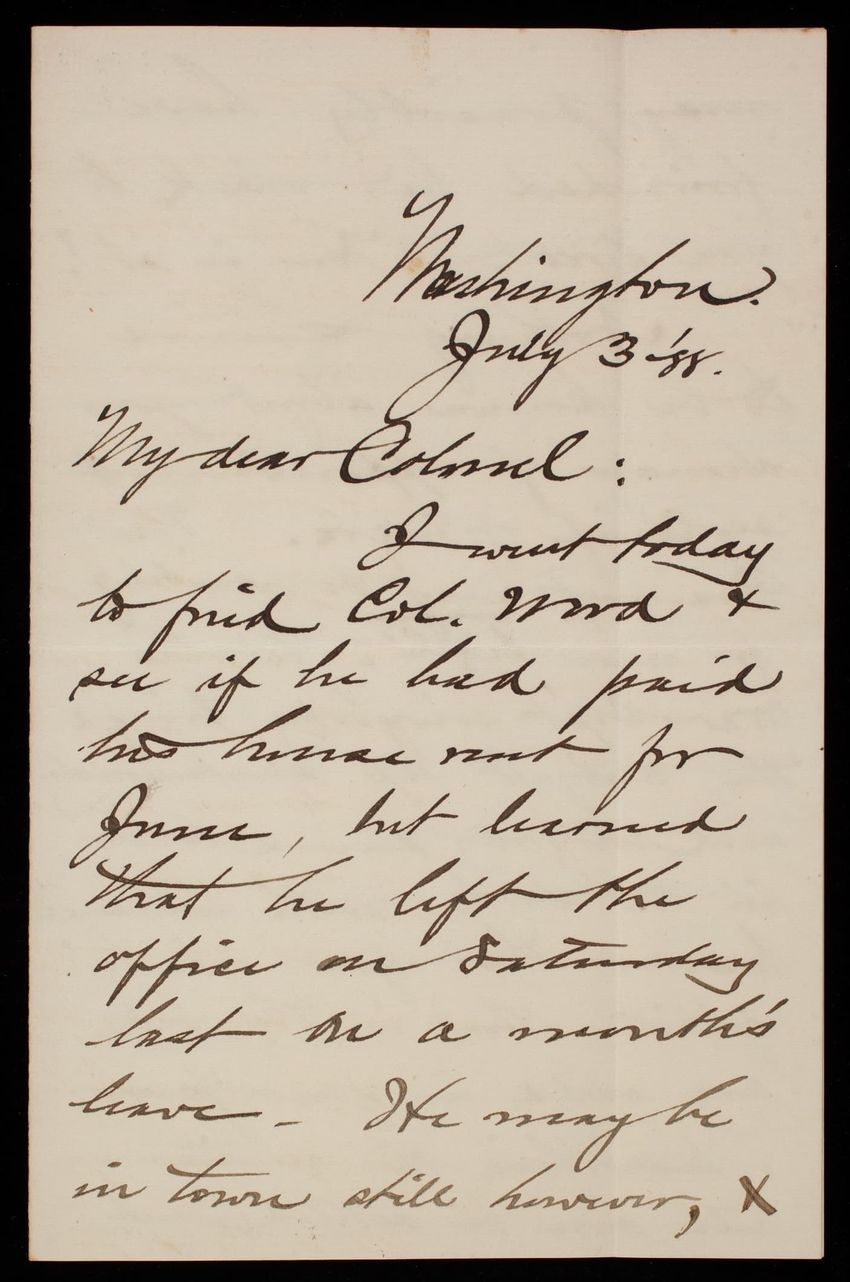 Washington.
July 3 '88.
My dear Colonel:
I went today
to find Col. Word &
see if he had paid
his house rent for
June, but learned
that he left the
office on Saturday
last on a month's
leave - He may be
in town still however, &